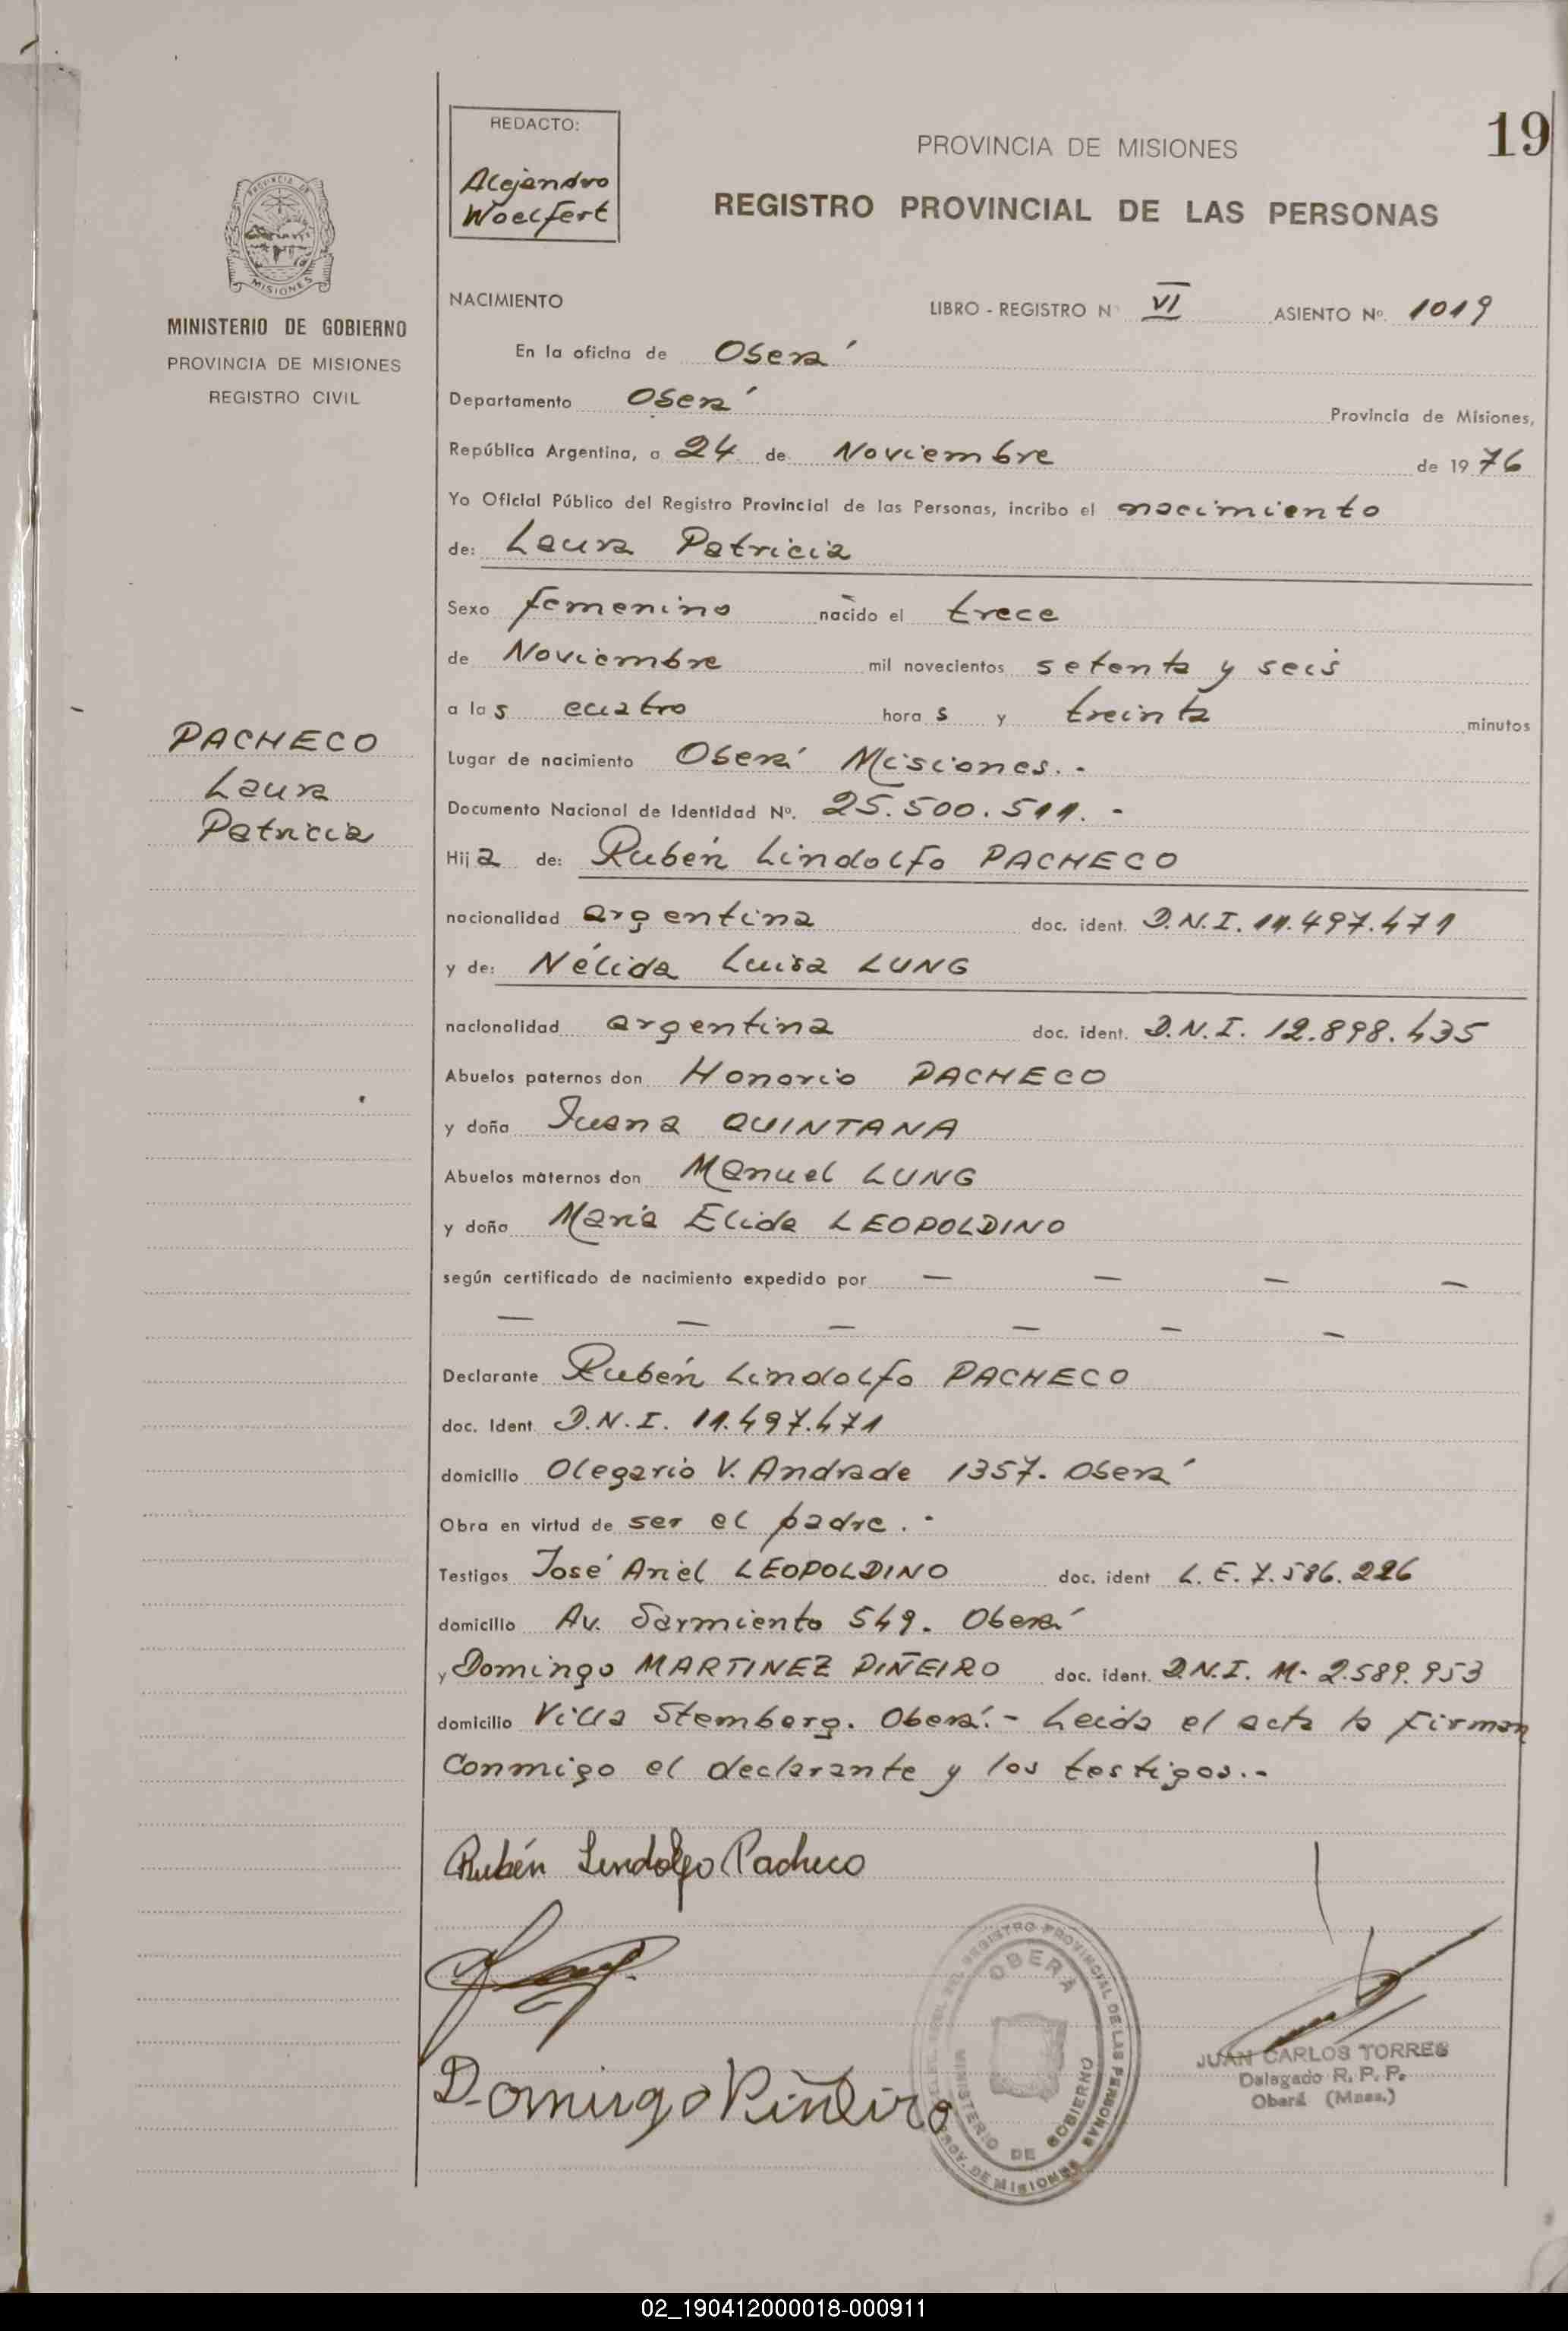 19
REDACTO:
Alejandro
Woelfert
PROVINCIA DE MISIONES
REGISTRO PROVINCIAL DE LAS PERSONAS
PROVINCIA DE
MISIONES
MINISTERIO DE GOBIERNO
PROVINCIA DE MISIONES
REGISTRO CIVIL
NACIMIENTO LIBRO - REGISTRO Nº VI ASIENTO Nº. 1019
En la oficina de Oberá
Departamento Oberá Provincia de Misiones,
República Argentina, a 24 de Noviembre de 1976
Yo Oficial Público del Registro Provincial de las Personas, incribo el nacimiento
de: Laura Patricia
Sexo femenino nacido el trece
de Noviembre mil novecientos setenta y seis
a las cuatro horas y treinta minutos
PACHECO
Laura
Patricia
Lugar de nacimiento Oberá Misiones.-
Documento Nacional de Identidad Nº. 25.500.511.-
Hija de: Rubén Lindolfo PACHECO
nacionalidad argentina doc. ident. D.N.I. 11.497.471
y de: Nélida Luisa LUNG
nacionalidad argentina doc. ident. D.N.I. 12.898.435
Abuelos paternos don Honorio PACHECO
y doña Juana QUINTANA
Abuelos maternos don Manuel LUNG
y doña María Elida LEOPOLDINO
según certificado de nacimiento expedido por — — — —
— — — — — —
Declarante Rubén Lindolfo PACHECO
doc. Ident. D.N.I. 11.497.471
domicilio Olegario V. Andrade 1357. Oberá
Obra en virtud de ser el padre.-
Testigos José Ariel LEOPOLDINO doc. ident L.E. 7.586.226
domicilio Av. Sarmiento 549. Oberá
y Domingo MARTINEZ PIÑEIRO doc. ident. D.N.I. M. 2.589.953
domicilio Villa Stemberg. Oberá.- Leida el acta la firman
Conmigo el declarante y los testigos.-
Rubén Lindolfo Pacheco
Domingo Piñeiro
OBERÁ
REGISTRO PROVINCIAL DE LAS PERSONAS
MINISTERIO DE GOBIERNO
PROV. DE MISIONES
JUAN CARLOS TORRES
Delegado R. P. P.
Oberá (Mnes.)
02_190412000018-000911